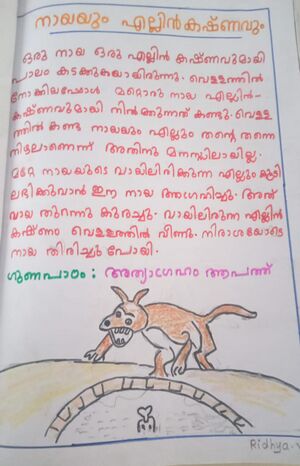 നായയും എല്ലിൻകഷ്ണവും
ഒരു നായ ഒരു എല്ലിൻ കഷ്ണവുമായി
പാലം കടക്കുകയായിരുന്നു. വെള്ളത്തിൽ
നോക്കിയപ്പോൾ മറ്റൊരു നായ എല്ലിൻ-
കഷ്ണവുമായി നിൽക്കുന്നത് കണ്ടു. വെള്ള
ത്തിൽ കണ്ട നായയും എല്ലും തന്റെ തന്നെ
നിഴലാണെന്ന് അതിനു മനസ്സിലായില്ല.
മറ്റേ നായയുടെ വായിലിരിക്കുന്ന എല്ലും കൂടി
ലഭിക്കുവാൻ ഈ നായ ആഗ്രഹിച്ചു. അത്
വായ തുറന്നു കുരച്ചു. വായിലിരുന്ന എല്ലിൻ
കഷ്ണം വെള്ളത്തിൽ വീണു. നിരാശയോടെ
നായ തിരിച്ചു പോയി.
ഗുണപാഠം : അത്യാഗ്രഹം ആപത്ത്
Ridhya.